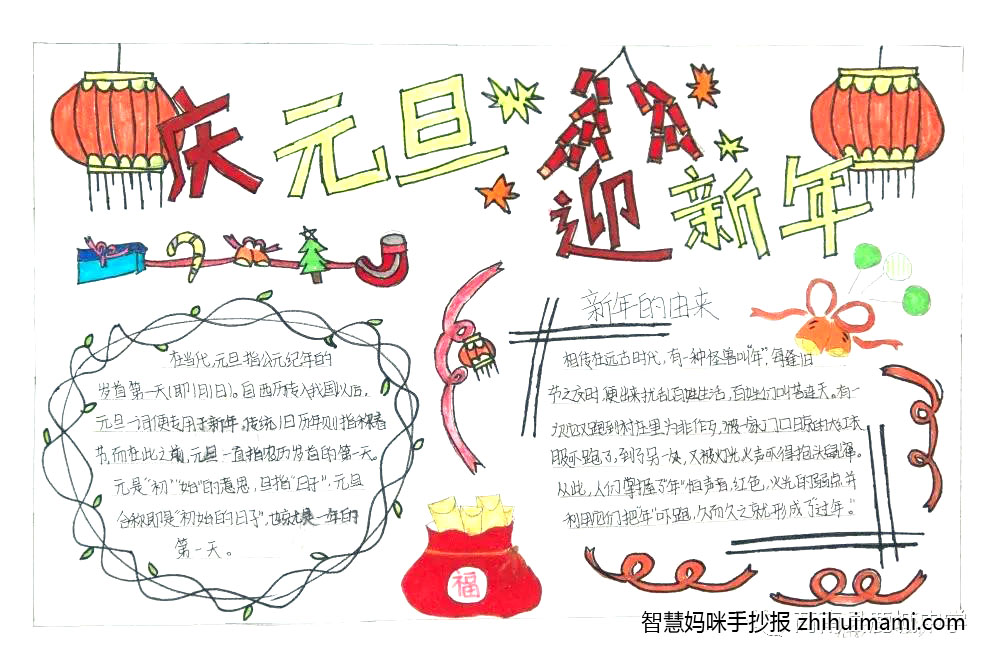 庆元旦
迎新年
在当代,元旦指公元纪年的
岁首第一天(即1月1日)。自西历传入我国以后,
元旦一词便专用于新年,传统旧历年则指称春
节,而在此之前,元旦一直指农历岁首的第一天。
元是"初""始"的意思,旦指"日子",元旦
合称即是"初始的日子",也就是一年的
第一天。
福
新年的由来
相传在远古时代,有一种怪兽叫"年",每逢旧
节之夜时,便出来扰乱百姓生活,百姓们叫苦连天。有一
次它又跑到村庄里为非作歹,被一家门口晾的大红衣
服吓跑了,到了另一处,又被灯光火声吓得抱头鼠窜。
从此,人们掌握了"年"怕声音,红色,火光的弱点,并
利用它们把"年"吓跑,久而久之就形成了"过年"。
智慧妈咪手抄报 zhihuimami.com